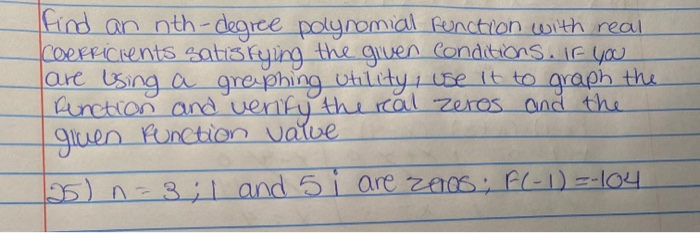 Find an nth-degree polynomial function with real
coefficients satisfying the given conditions. If you
are using a graphing utility, use it to graph the
function and verify the real zeros and the
given function value
25) n = 3 ; 1 and 5i are zeros; F(-1) = -104